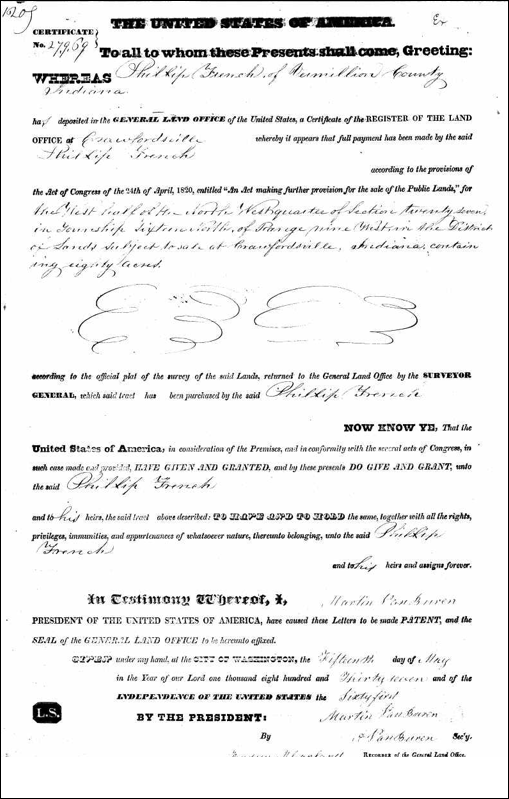 THE UNITED STATES OF AMERICA.
CERTIFICATE
No. 27969
To all to whom these Presents shall come, Greeting:
WHEREAS Phillip French, of Vermillion County
Indiana
ha deposited in the GENERAL LAND OFFICE of the United States, a Certificate of the REGISTER OF THE LAND
OFFICE at Crawfordsville whereby it appears that full payment has been made by the said
Phillip French
according to the provisions of
the Act of Congress of the 24th of April, 1820, entitled "An Act making further provision for the sale of the Public Lands," for
the West half of the North West quarter of Section twenty seven,
in Township Sixteen North, of Range nine West in the District
of Lands subject to sale at Crawfordsville, Indiana, contain
ing eighty acres.
according to the official plat of the survey of the said Lands, returned to the General Land Office by the SURVEYOR
GENERAL, which said tract has been purchased by the said Phillip French
NOW KNOW YE, That the
United States of America, in consideration of the Premises, and in conformity with the several acts of Congress, in
such case made and provided, HAVE GIVEN AND GRANTED, and by these presents DO GIVE AND GRANT, unto
the said Phillip French
and to his heirs, the said tract above described: TO HAVE AND TO HOLD the same, together with all the rights,
privileges, immunities, and appurtenances of whatsoever nature, thereunto belonging, unto the said Phillip
French
and to his heirs and assigns forever.
In Testimony Whereof, I, Martin Van Buren
PRESIDENT OF THE UNITED STATES OF AMERICA, have caused these Letters to be made PATENT, and the
SEAL of the GENERAL LAND OFFICE to be hereunto affixed.
GIVEN under my hand, at the CITY OF WASHINGTON, the Fifteenth day of May
in the Year of our Lord one thousand eight hundred and Thirty seven and of the
INDEPENDENCE OF THE UNITED STATES the Sixty first
L.S.
BY THE PRESIDENT: Martin Van Buren
By Van Buren Sec'y.
RECORDER of the General Land Office.